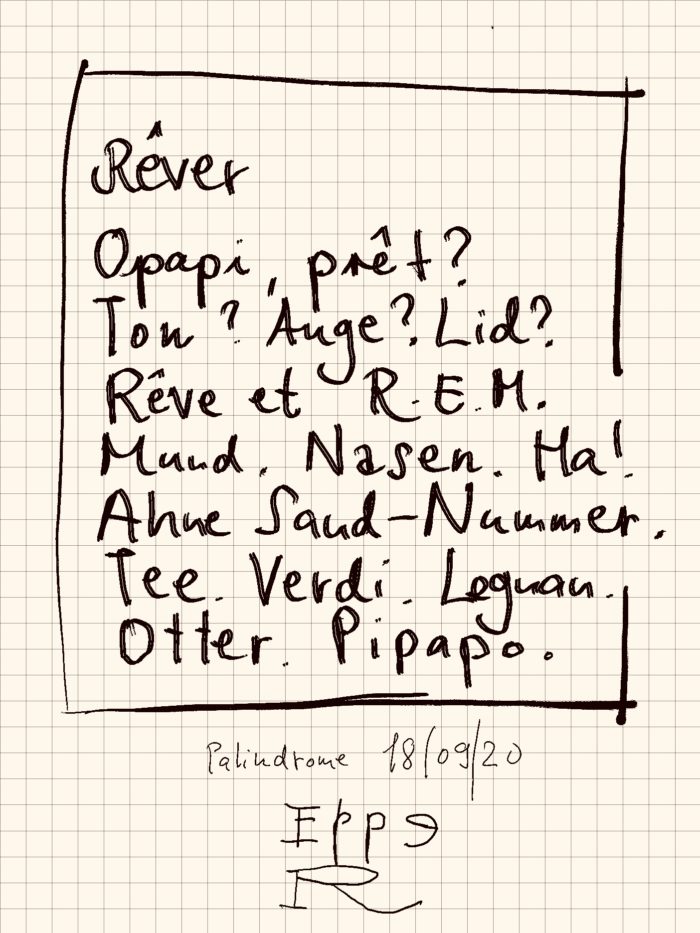 Rêver
Opapi, prêt?
Ton? Auge? Lid?
Rêve et R.E.M.
Mund. Nasen. Ha!
Ahne Sand-Nummer.
Tee. Verdi. Leguan.
Otter. Pipapo.
Palindrome 18/09/20